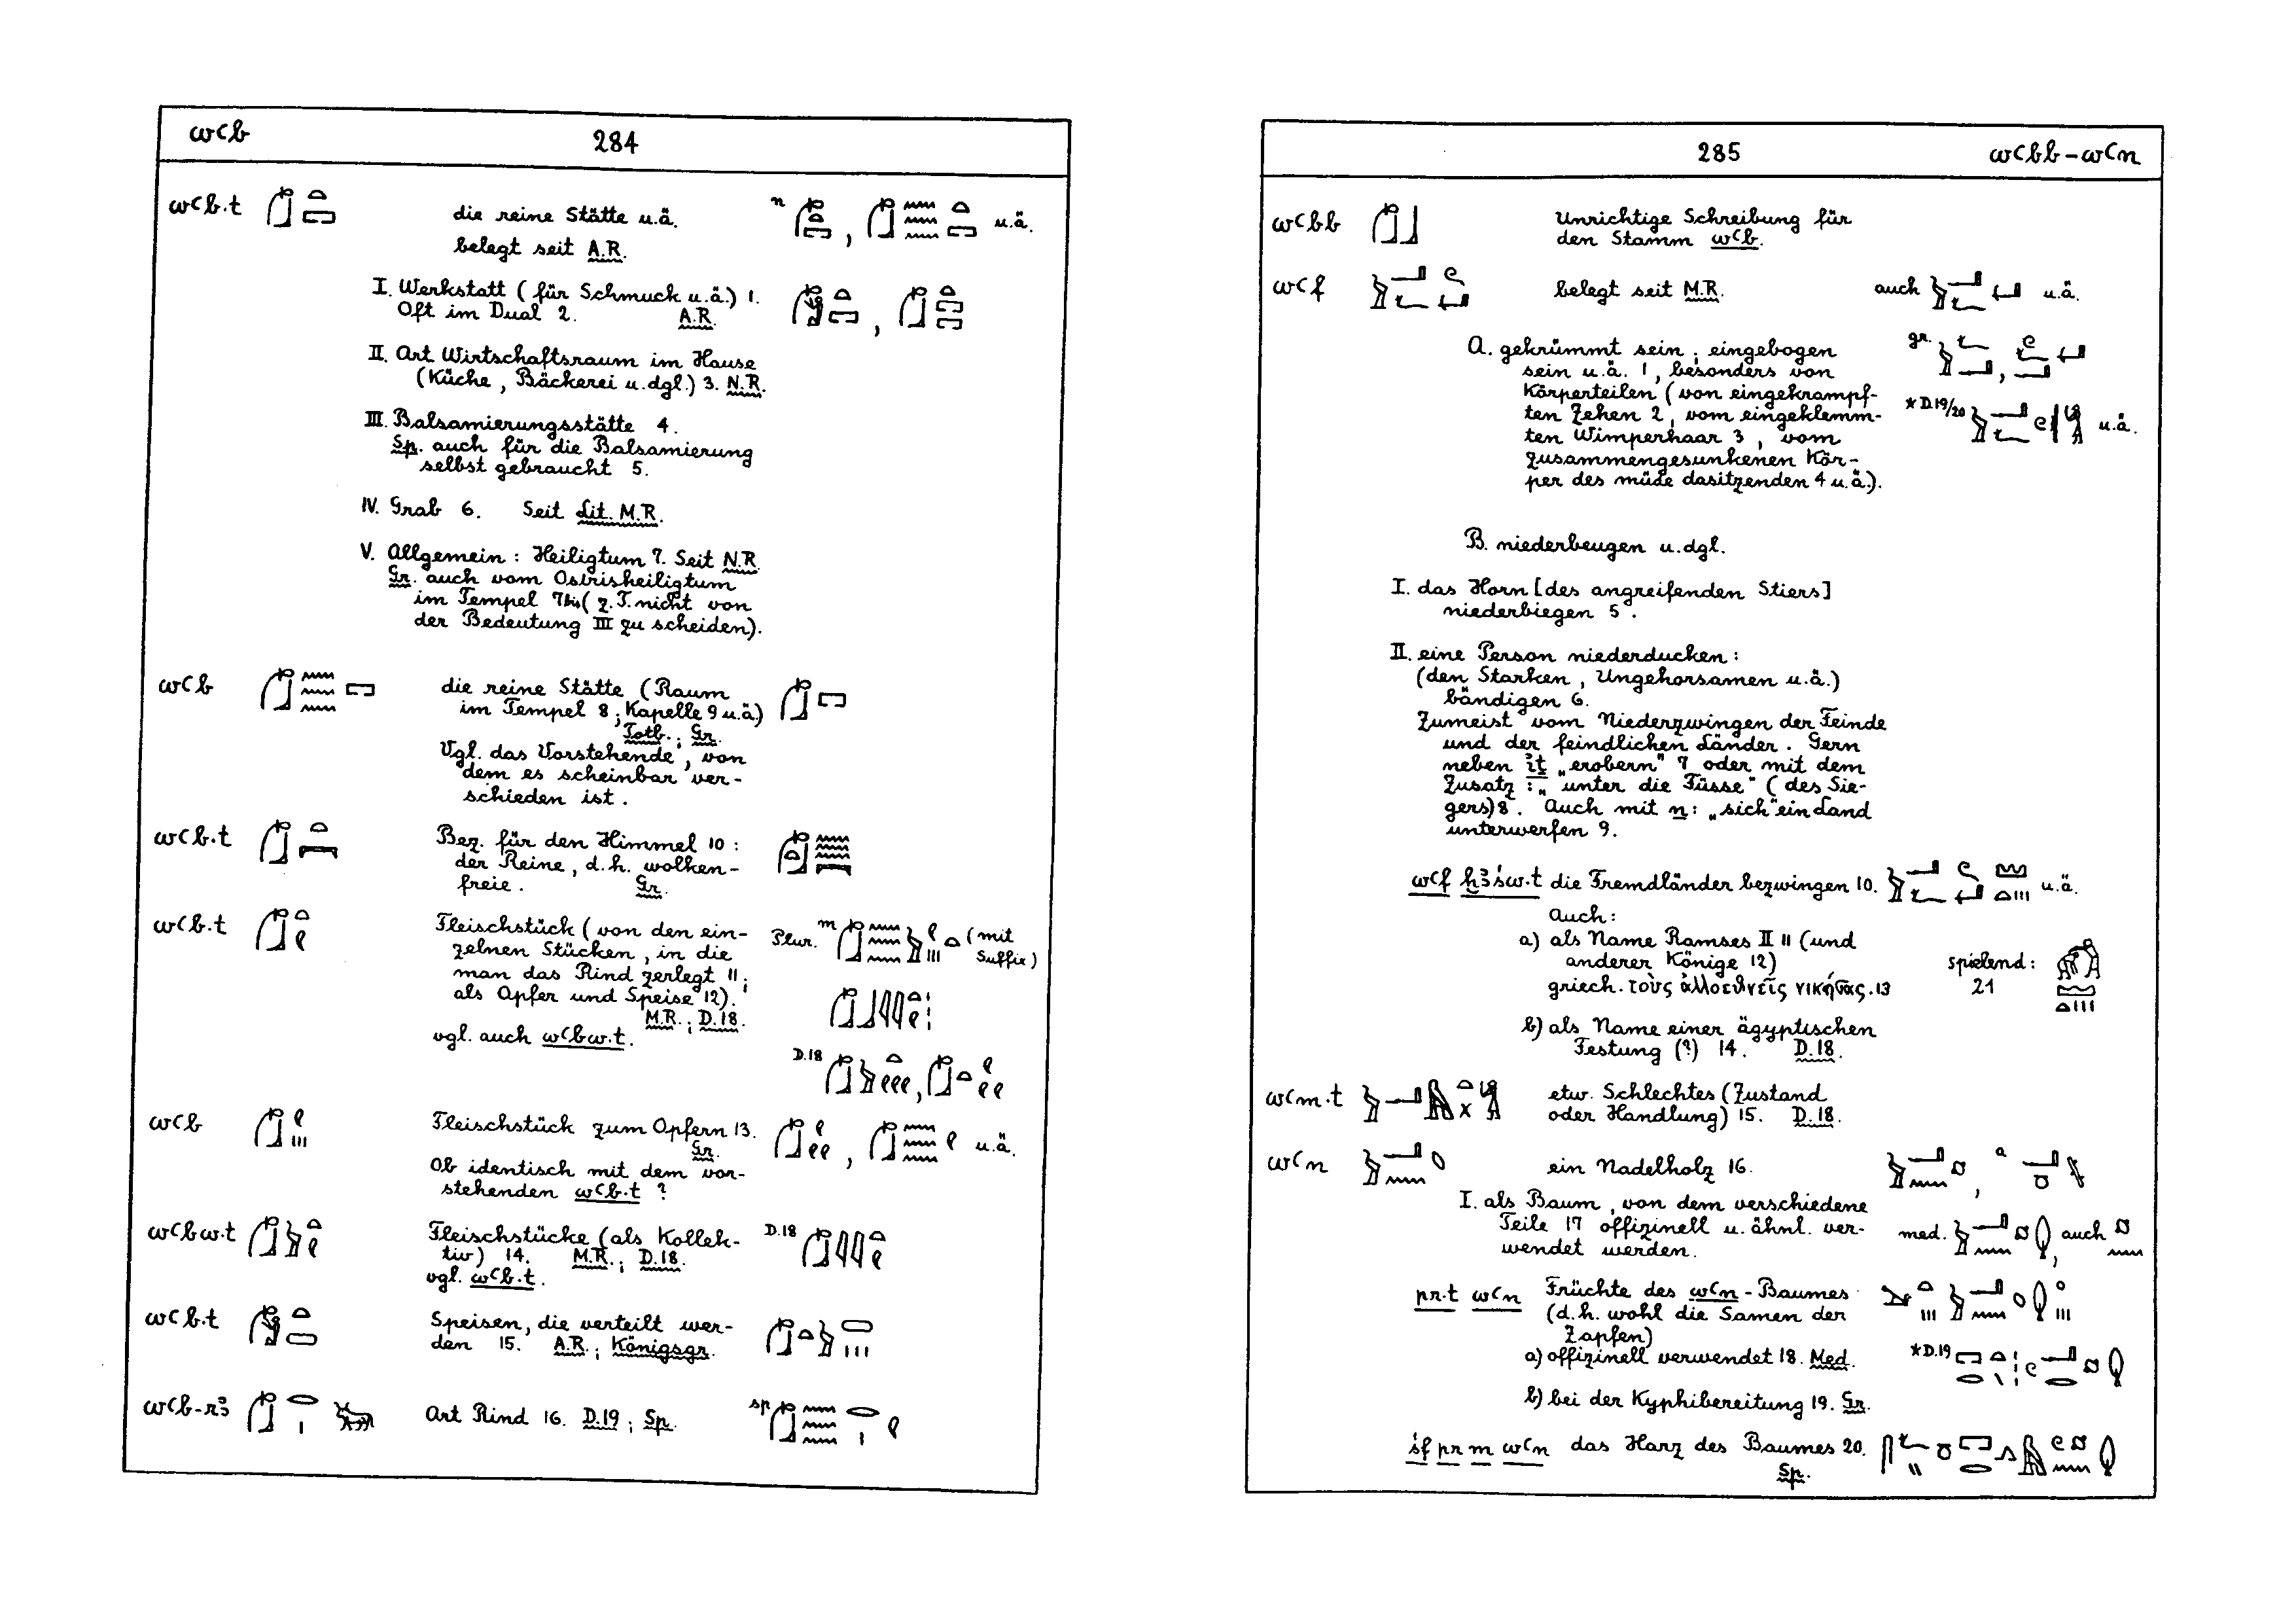 wꜥb 284
wꜥb.t die reine Stätte u.ä. n , u.ä.
belegt seit A.R.
I. Werkstatt (für Schmuck u.ä.) 1. ,
Oft im Dual 2. A.R.
II. Art Wirtschaftsraum im Hause
(Küche, Bäckerei u.dgl.) 3. N.R.
III. Balsamierungsstätte 4.
Sp. auch für die Balsamierung
selbst gebraucht 5.
IV. Grab 6. Seit Lit. M.R.
V. Allgemein: Heiligtum 7. Seit N.R.
Gr. auch vom Osirisheiligtum
im Tempel 7bis (z.T. nicht von
der Bedeutung III zu scheiden).
wꜥb die reine Stätte (Raum
im Tempel 8; Kapelle 9 u.ä.)
Totb.; Gr.
Vgl. das Vorstehende, von
dem es scheinbar ver-
schieden ist.
wꜥb.t Bez. für den Himmel 10:
der Reine, d.h. wolken-
freie. Gr.
wꜥb.t Fleischstück (von den ein- Plur. m (mit
zelnen Stücken, in die Suffix)
man das Rind zerlegt 11;
als Opfer und Speise 12).
M.R.; D.18.
vgl. auch wꜥbw.t.
D.18 ,
wꜥb Fleischstück zum Opfern 13. , u.ä.
Gr.
Ob identisch mit dem vor-
stehenden wꜥb.t ?
wꜥbw.t Fleischstücke (als Kollek- D.18
tiv) 14. M.R.; D.18.
vgl. wꜥb.t.
wꜥb.t Speisen, die verteilt wer-
den 15. A.R.; Königsgr.
wꜥb-rꜣ Art Rind 16. D.19; Sp. sp
285 wꜥbb-wꜥn
wꜥbb Unrichtige Schreibung für
den Stamm wꜥb.
wꜥf belegt seit M.R. auch u.ä.
A. gekrümmt sein; eingebogen gr. ,
sein u.ä. 1, besonders von
Körperteilen (von eingekrampf-
ten Zehen 2, vom eingeklemm- *D.19/20 u.ä.
ten Wimperhaar 3, vom
zusammengesunkenen Kör-
per des müde dasitzenden 4 u.ä.).
B. niederbeugen u.dgl.
I. das Horn [des angreifenden Stiers]
niederbiegen 5.
II. eine Person niederducken:
(den Starken, Ungehorsamen u.ä.)
bändigen 6.
Zumeist vom Niederzwingen der Feinde
und der feindlichen Länder. Gern
neben iṯ „erobern" 7 oder mit dem
Zusatz: „unter die Füsse" (des Sie-
gers) 8. Auch mit n: „sich" ein Land
unterwerfen 9.
wꜥf ḫꜣśw.t die Fremdländer bezwingen 10. u.ä.
Auch:
a) als Name Ramses II 11 (und
anderer Könige 12) spielend:
griech. τοὺς ἀλλοεθνεῖς νικήσας. 13 21
b) als Name einer ägyptischen
Festung (?) 14. D.18.
wꜥm.t etw. Schlechtes (Zustand
oder Handlung) 15. D.18.
wꜥn ein Nadelholz 16. , a
I. als Baum, von dem verschiedene
Teile 17 offizinell u. ähnl. ver- med. , auch
wendet werden.
pr.t wꜥn Früchte des wꜥn-Baumes
(d.h. wohl die Samen der
Zapfen)
a) offizinell verwendet 18. Med. *D.19
b) bei der Kyphibereitung 19. Gr.
śf pr m wꜥn das Harz des Baumes 20.
Sp.